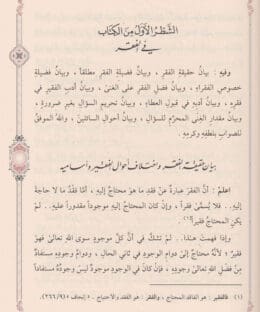 الشطر الأول من الكتاب
في الفقر
وفيه : بيانُ حقيقةِ الفقرِ ، وبيانُ فضيلةِ الفقرِ مطلقاً ، وبيانُ فضيلةِ
خصوصِ الفقراءِ ، وبيانُ فضلِ الفقيرِ على الغنيِّ ، وبيانُ أدبِ الفقيرِ في
فقرِهِ ، وبيانُ أدبِهِ في قبولِ العطاءِ ، وبيانُ تحريمِ السؤالِ بغيرِ ضرورةٍ ،
وبيانُ مقدارِ الغنى المحرِّمِ للسؤالِ ، وبيانُ أحوالِ السائلينَ ، واللهُ الموفقُ
للصوابِ بلطفِهِ وكرمِهِ .
بيان حقيقة الفقر واختلاف أحوال الفقير وأساميه
اعلمْ : أنَّ الفقرَ عبارةٌ عنْ فقدِ ما هوَ محتاجٌ إليهِ ، أمَّا فقدُ ما لا حاجةَ
إليهِ . . فلا يُسمَّى فقراً ، وإنْ كانَ المحتاجُ إليهِ موجوداً مقدوراً عليهِ . . لمْ
يكنِ المحتاجُ فقيراً (١) .
وإذا فهمتَ هذا . . لمْ تشكَّ في أنَّ كلَّ موجودٍ سوى اللهِ تعالىٰ فهوَ
فقيرٌ ؛ لأنَّهُ محتاجٌ إلىٰ دوامِ الوجودِ في ثاني الحالِ ، ودوامُ وجودِهِ مستفادٌ
مِنْ فضلِ اللهِ تعالىٰ وجودِهِ ، فإنْ كانَ في الوجودِ موجودٌ ليسَ وجودُهُ مستفاداً
(١) فالفقير : هو الفاقد المحتاج ، والفقر : هو الفقد والاحتياج . « إتحاف » ( ٢٦٦/٩ ) .